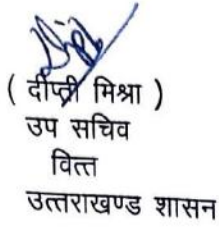 ( दीप्ती मिश्रा )
उप सचिव
वित्त
उत्तराखण्ड शासन